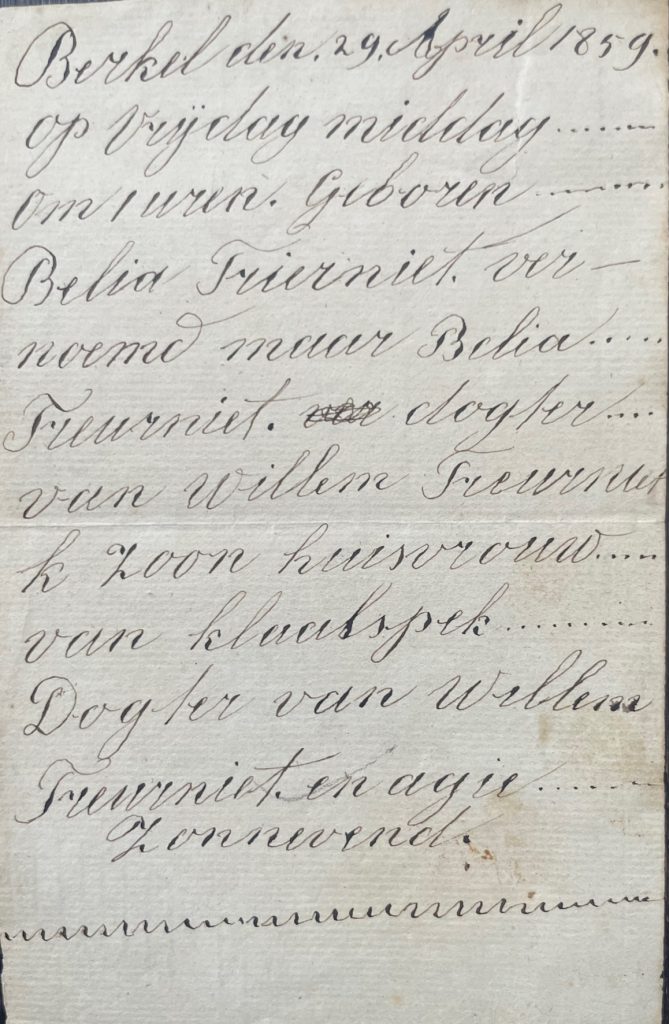 Berkel den. 29. April 1859.
op Vrijdag middag ......
om 1 uren. Geboren ......
Belia Trierniet. ver-
noemd maar Belia .....
Treurniet. dogter ....
van Willem Treurniet
k Zoon huisvrouw ....
van klaalspek ........
Dogter van Willem
Treurniet. en agie ......
Zonnevend.